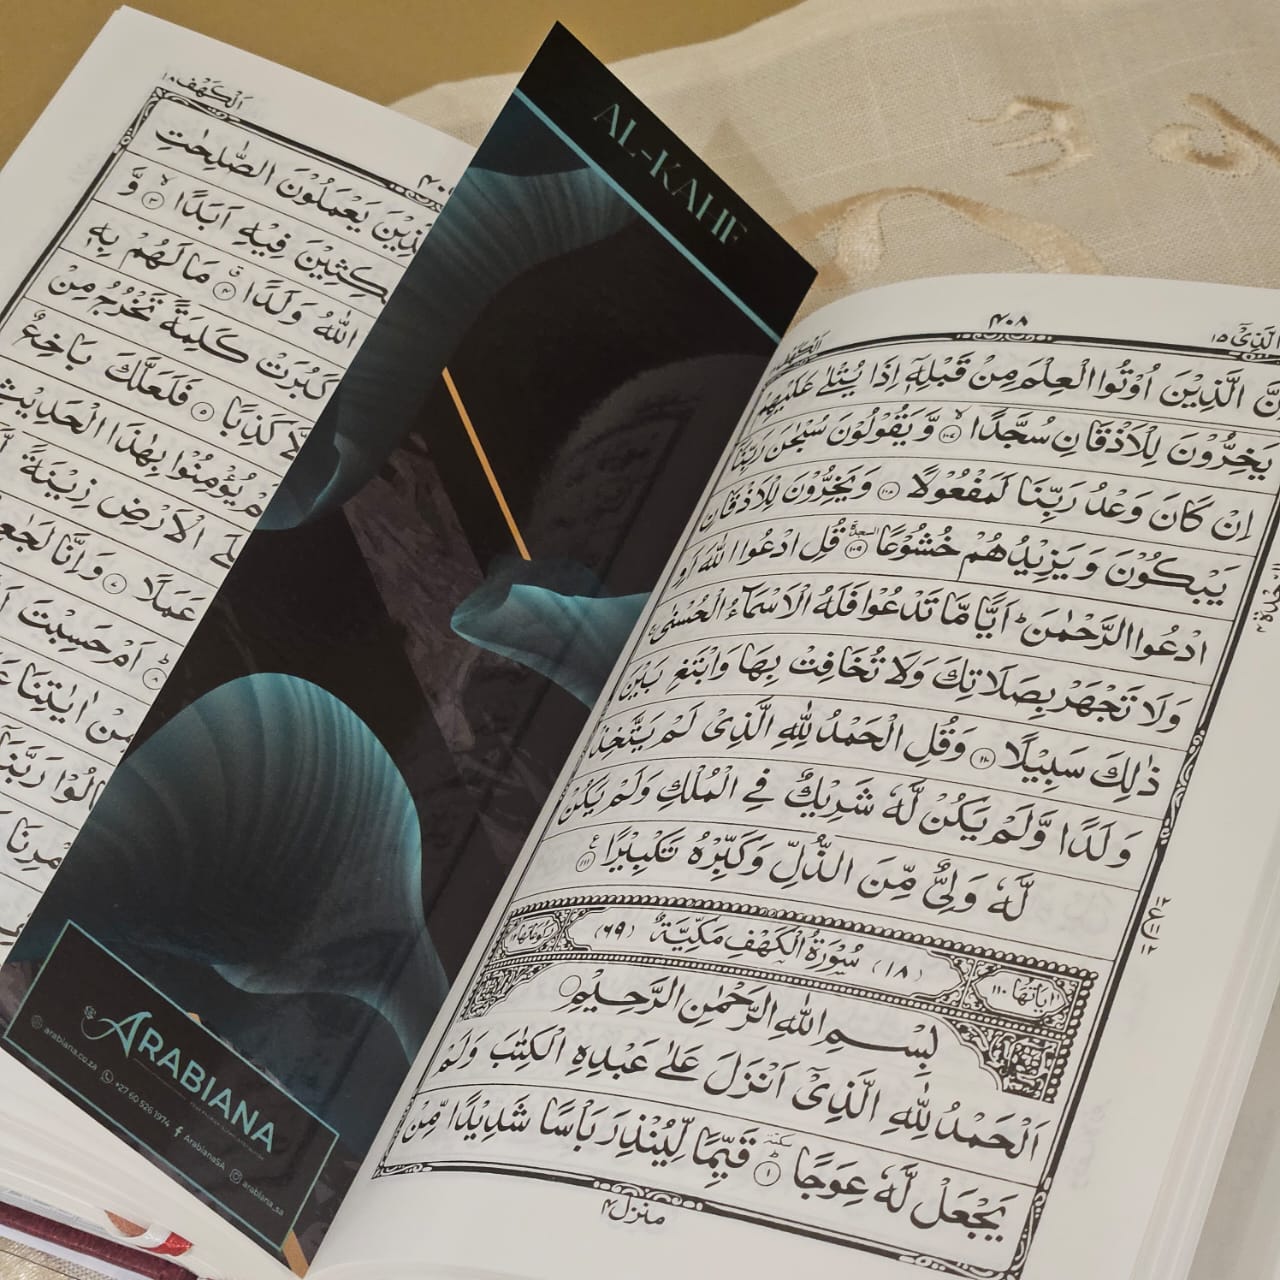 ٤٠٨
الَّذِیْۤ ١٥
الَّذِیْنَ اُوْتُوا الْعِلْمَ مِنْ قَبْلِهٖۤ اِذَا یُتْلٰى عَلَیْهِمْ
یَخِرُّوْنَ لِلْاَذْقَانِ سُجَّدًا ۙ‏ ١٠٧ وَّ یَقُوْلُوْنَ سُبْحٰنَ رَبِّنَاۤ
اِنْ كَانَ وَعْدُ رَبِّنَا لَمَفْعُوْلًا ١٠٨ وَ یَخِرُّوْنَ لِلْاَذْقَانِ
یَبْكُوْنَ وَ یَزِیْدُهُمْ خُشُوْعًا ١٠٩ قُلِ ادْعُوا اللّٰهَ اَوِ
ادْعُوا الرَّحْمٰنَ ؕ اَیًّا مَّا تَدْعُوْا فَلَهُ الْاَسْمَآءُ الْحُسْنٰى
وَلَا تَجْهَرْ بِصَلَاتِكَ وَلَا تُخَافِتْ بِهَا وَابْتَغِ بَیْنَ
ذٰلِكَ سَبِیْلًا ١١٠ وَقُلِ الْحَمْدُ لِلّٰهِ الَّذِیْ لَمْ یَتَّخِذْ
وَلَدًا وَّلَمْ یَكُنْ لَّهٗ شَرِیْكٌ فِی الْمُلْكِ وَلَمْ یَكُنْ
لَّهٗ وَلِیٌّ مِّنَ الذُّلِّ وَكَبِّرْهُ تَكْبِیْرًا ١١١
اٰیَاتُهَا ١١٠ (١٨) سُوْرَةُ الْكَهْفِ مَكِّیَّةٌ (٦٩) رُكُوْعَاتُهَا ١٢
بِسْمِ اللّٰهِ الرَّحْمٰنِ الرَّحِیْمِ
اَلْحَمْدُ لِلّٰهِ الَّذِیْۤ اَنْزَلَ عَلٰى عَبْدِهِ الْكِتٰبَ وَلَمْ
یَجْعَلْ لَّهٗ عِوَجًا ١ قَیِّمًا لِّیُنْذِرَ بَاْسًا شَدِیْدًا مِّنْ
منزل ٤
AL-KAHF
ARABIANA
arabiana.co.za +27 60 526 1974 ArabianaSA arabiana_sa
اَلْكَهْف ١٨
یَعْمَلُوْنَ الصّٰلِحٰتِ
فِیْهِ اَبَدًا ٣ وَّ
اللّٰهُ وَلَدًا ٤ مَا لَهُمْ بِهٖ
كَبُرَتْ كَلِمَةً تَخْرُجُ مِنْ
كَذِبًا ٥ فَلَعَلَّكَ بَاخِعٌ
یُؤْمِنُوْا بِهٰذَا الْحَدِیْثِ
الْاَرْضِ زِیْنَةً
عَمَلًا ٧ وَاِنَّا
اَمْ حَسِبْتَ
مِنْ اٰیٰتِنَا
رَبَّنَا